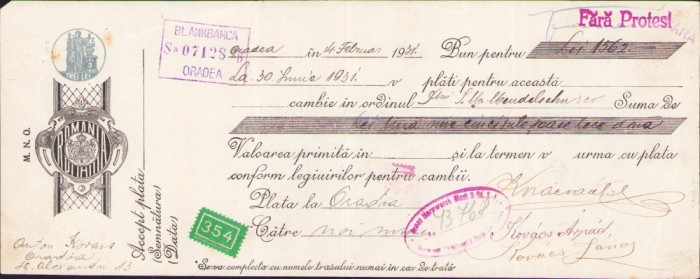 Fără Protest
BLANKBANCA
Sa 07128
ORADEA
Oradea în 4 Februar 1931. Bun pentru Lei 1562
La 30 Iunie 1931. v plăti pentru această
cambie în ordinul S. Mendelsohn Suma de
Lei una mie cinci sute șase zeci două
Valoarea primită în și la termen v urma cu plata
conform legiuirilor pentru cambii.
Plata la Oradea
Către noi
Kovács Árpád
Kovács János
M. N. O.
ROMANIA
Accept plata
Semnătura
(Data)
354
Anton Kovacs
Oradia
13
* Se va complecta cu numele trasului numai în caz de trată